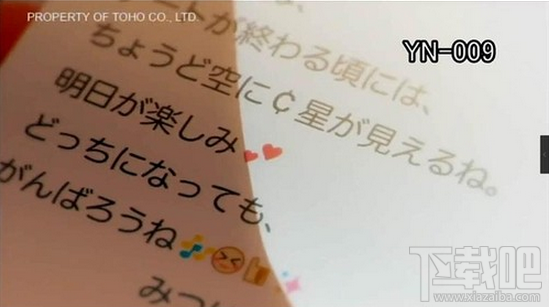 PROPERTY OF TOHO CO., LTD.
YN-009
ートが終わる頃には、
ちょうど空に¢星が見えるね。
明日が楽しみ💕
どっちになっても、
がんばろうね🎶
みつ
下载吧
www.xiazaiba.com